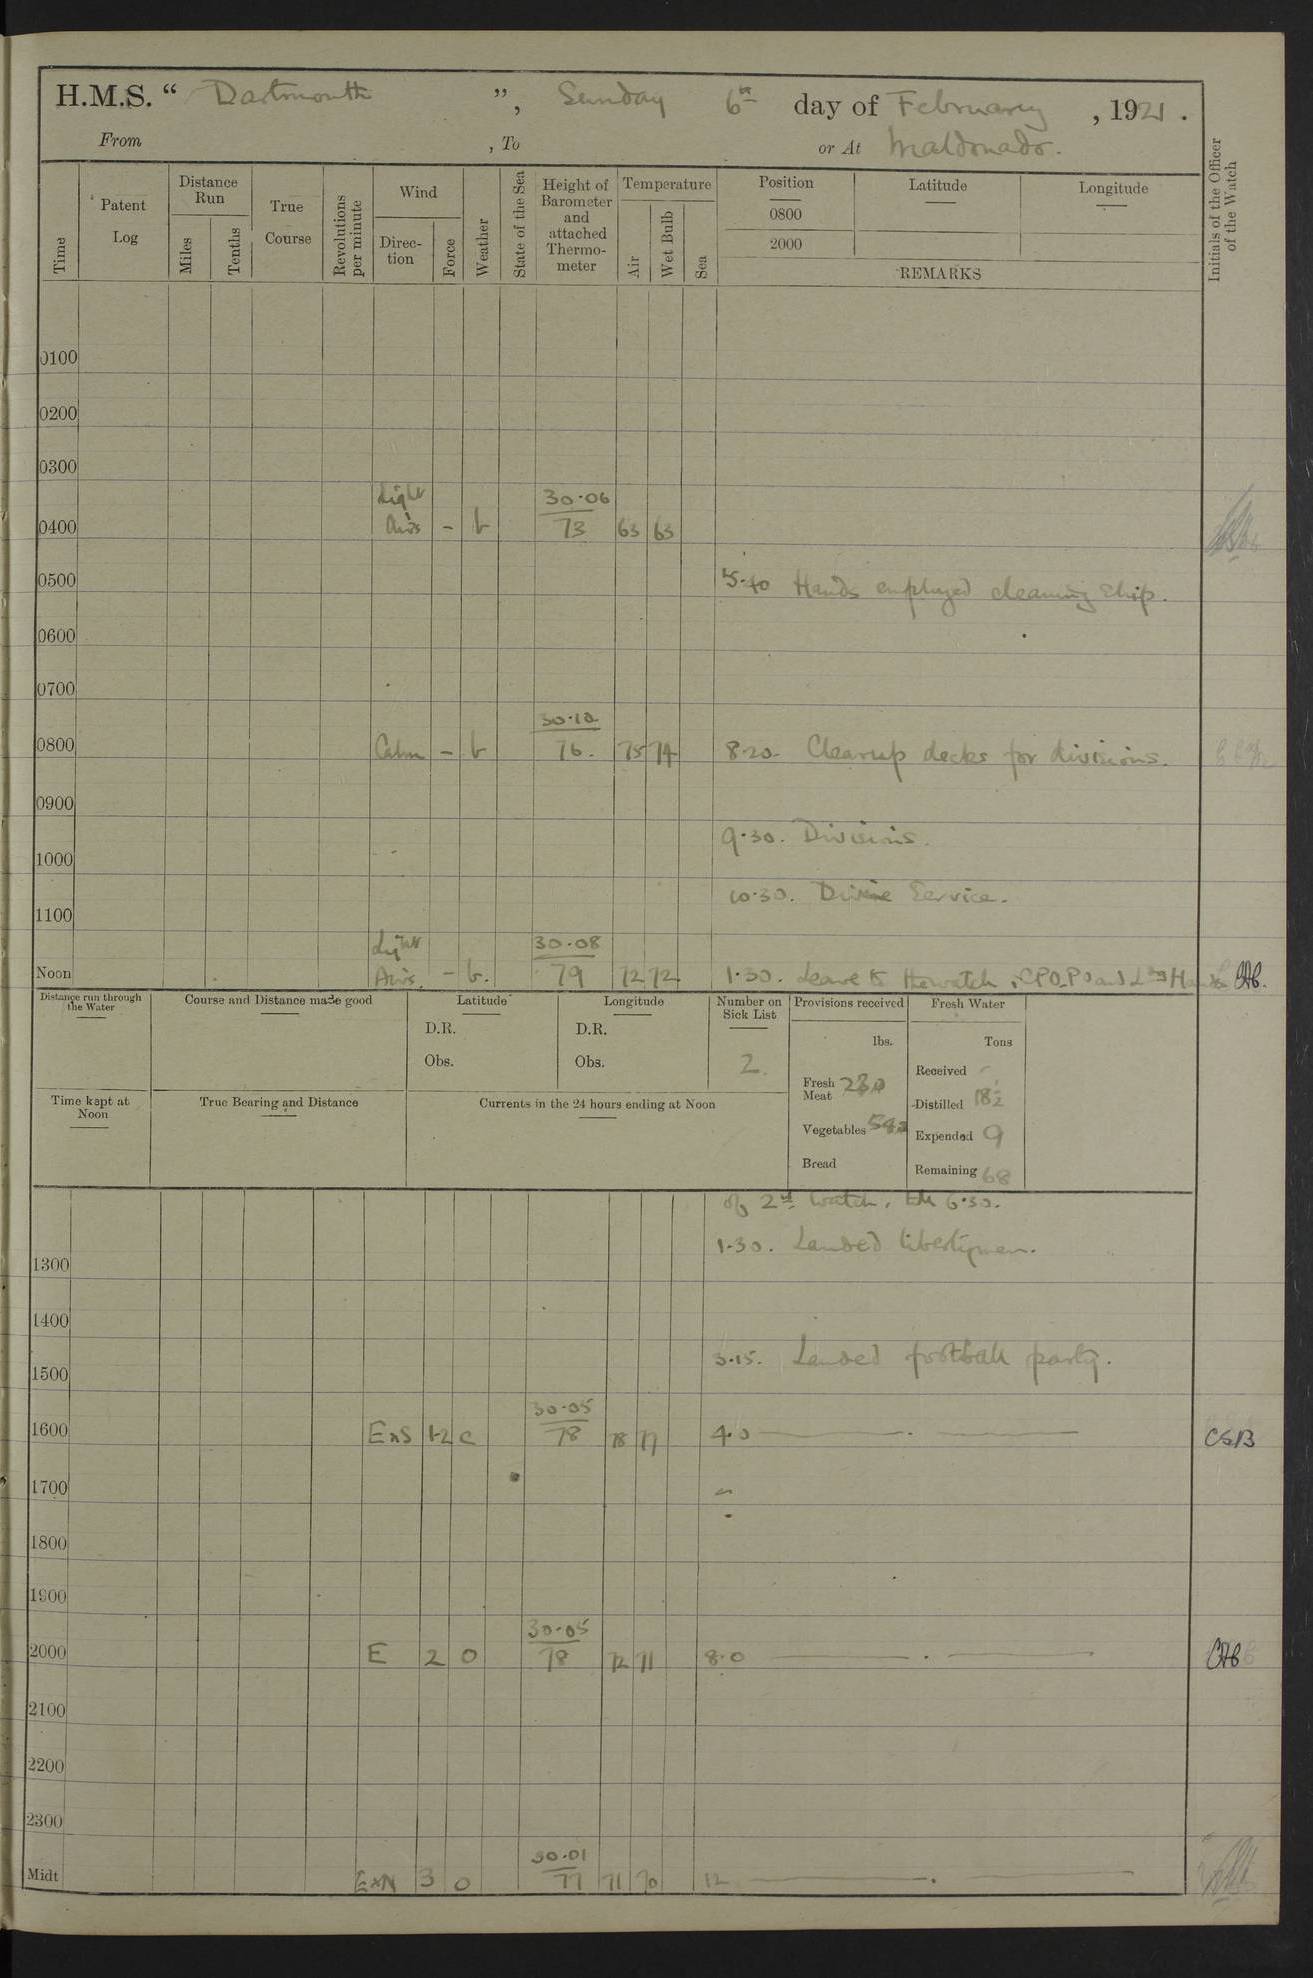 H.M.S. “ Dartmouth ”, Sunday 6th day of February , 1921 .
From , To or At Maldonado.
Time Patent Log Distance Run Miles Tenths True Course Revolutions per minute Wind Direc-tion Force Weather State of the Sea Height of Barometer and attached Thermo-meter Temperature Air Wet Bulb Sea Position 0800 2000 Latitude Longitude REMARKS Initials of the Officer of the Watch
0100
0200
0300
Light 30.06
0400 Airs - b 73 63 63
0500 5.40 Hands employed cleaning ship.
0600
0700
30.10
0800 Calm - b 76. 75 74 8.20. Clearup decks for divisions.
0900
9.30. Divisions.
1000
10.30. Divine Service.
1100
Light 30.08
Noon Airs. - b. 79 72 72 1.30. Leave to the watch, CPO, PO and Ldg Hands CAB.
Distance run through the Water Course and Distance made good Latitude Longitude Number on Sick List Provisions received Fresh Water
D.R. D.R. lbs. Tons
Obs. Obs. 2. Received -
Fresh Meat 230 Distilled 18½
Time kept at Noon True Bearing and Distance Currents in the 24 hours ending at Noon
Vegetables Expended 9
Bread Remaining 68
of 2nd watch, till 6.30.
1.30. Landed libertymen.
1300
1400
3.15. Landed football party.
1500
30.05
1600 ExS 1-2 c 78 78 77 4.0 CSB
1700
1800
1900
30.05
2000 E 2 o 78 72 71 8.0 CAB
2100
2200
2300
30.01
Midt ExN 3 o 77 71 70 12